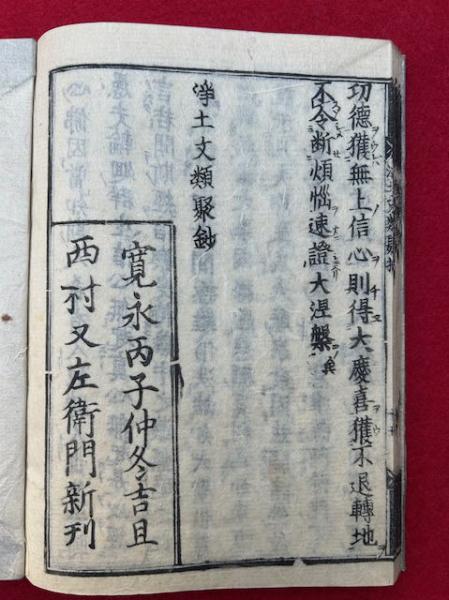 功德獲無上信心則得大慶喜獲不退轉地
不令断煩惱速證大涅槃矣
淨土文類聚鈔
寛永丙子仲冬吉旦
西村又左衛門新刊